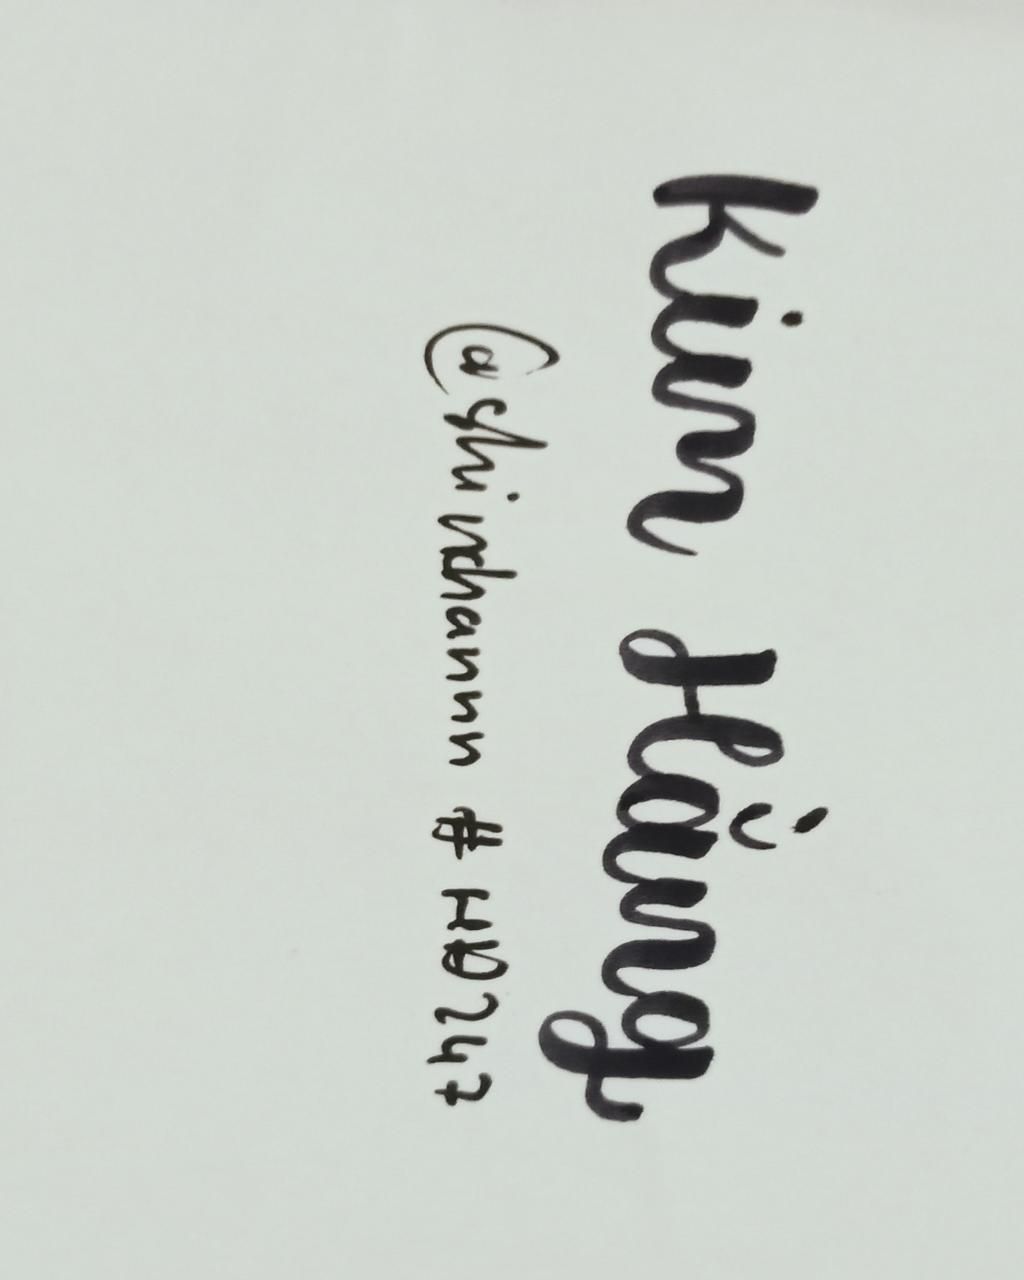 Kim Hằng
@shinchannn #HD247